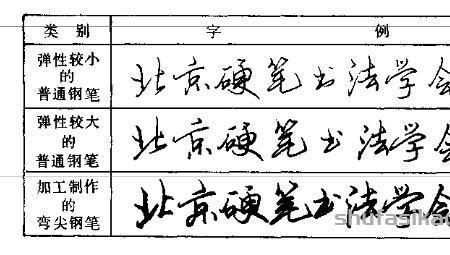 类 别 字 例
弹性较小
的
普通钢笔
北京硬笔书法学会
弹性较大
的
普通钢笔
北京硬笔书法学会
加工制作
的
弯尖钢笔
北京硬笔书法学会